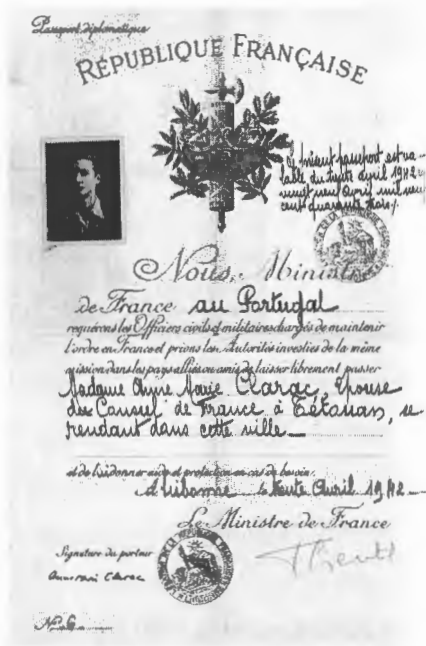 Passeport diplomatique
RÉPUBLIQUE FRANÇAISE
Le présent passeport est va-
lable du trente avril 1942
vingt neuf avril mil neuf
cent quarante trois.
Nous, Ministre
de France au Portugal
requérons les Officiers civils et militaires chargés de maintenir
l'ordre en France et prions les Autorités investies de la même
mission dans les pays alliés ou amis de laisser librement passer
Madame Anne Marie Clarac, épouse
du Consul de France à Tétouan, se
rendant dans cette ville
et de lui donner aide et protection en cas de besoin.
à Lisbonne le trente Avril 1942
Le Ministre de France
Signature du porteur
Anne Marie Clarac
No 6